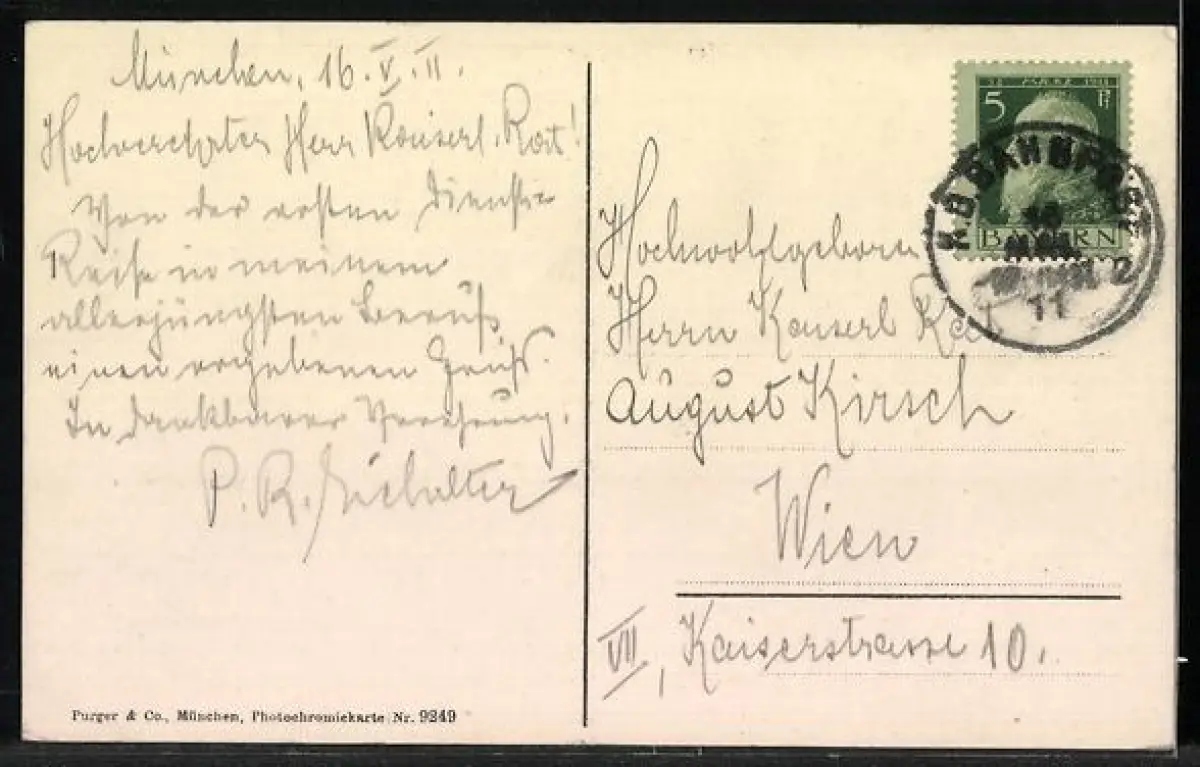 München, 16.V.11.
Hochverehrter Herr Kaiserl. Rat!
Von der ersten Dienst=
Reise in meinem
allerjüngsten Beruf
einen ergebenen Gruß.
In dankbarer Verehrung.
P. R.
Purger & Co., München, Photochromiekarte Nr. 9249
5 Pf
BAYERN
K.B.BAHNPOST
16
MAI
2
11
Hochwohlgeborn
Herrn Kaiserl Rat
August Kirsch
Wien
VII, Kaiserstrasse 10.